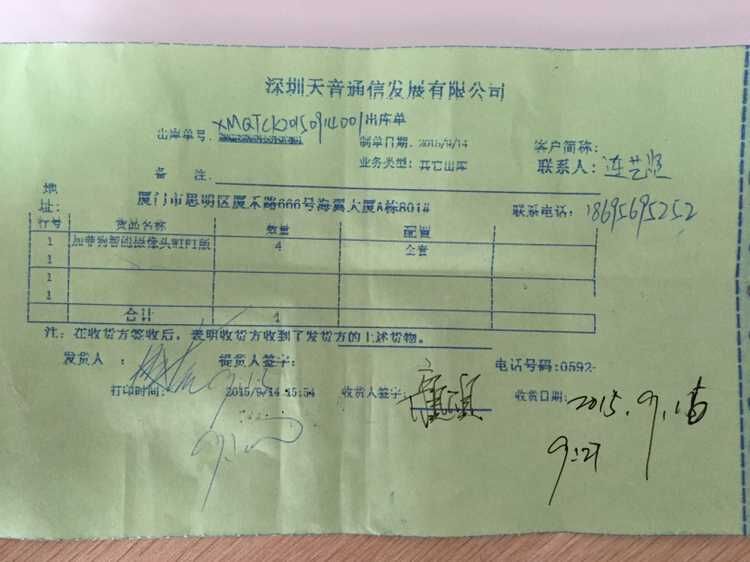 深圳天音通信发展有限公司
出库单号: XMQTCK20150914001出库单
制单日期: 2015/9/14 客户简称:
业务类型: 其它出库 联系人: 连艺
备 注:
地址: 厦门市思明区厦禾路666号海翼大厦A栋801# 联系电话: 18695695252
行号 货品名称 数量 配置
1 加菲狗智能摄像头WIFI版 4 全套
1
1
1
合计 4
注: 在收货方签收后, 表明收货方收到了发货方的上述货物。
发货人 : 提货人签字: 电话号码:0592-
9.15
打印时间: 2015/9/14 15:54 收货人签字: 收货日期: 2015.9.15
9:27